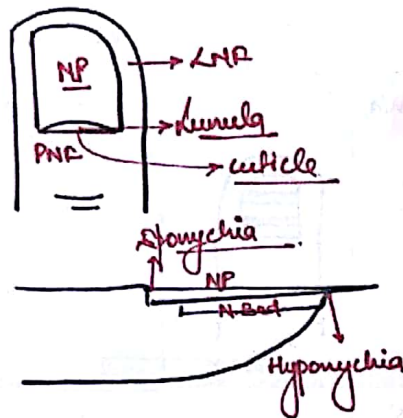 NP
LNF
Lunula
PNF
cuticle
Eponychia
NP
N Bed
Hyponychia